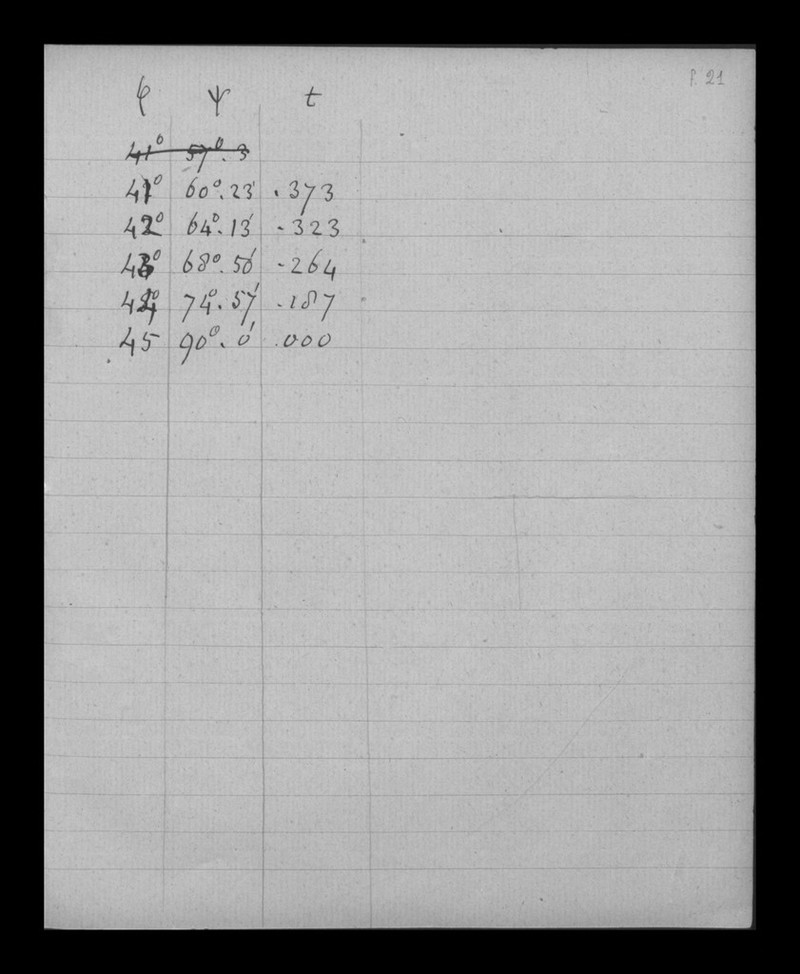 P. 21
φ ψ t
41° 57°. 3
41° 60°. 23' .373
42° 64°. 13' .323
43° 68°. 50' .264
44° 74°. 57' .187
45 90°. 0' .000